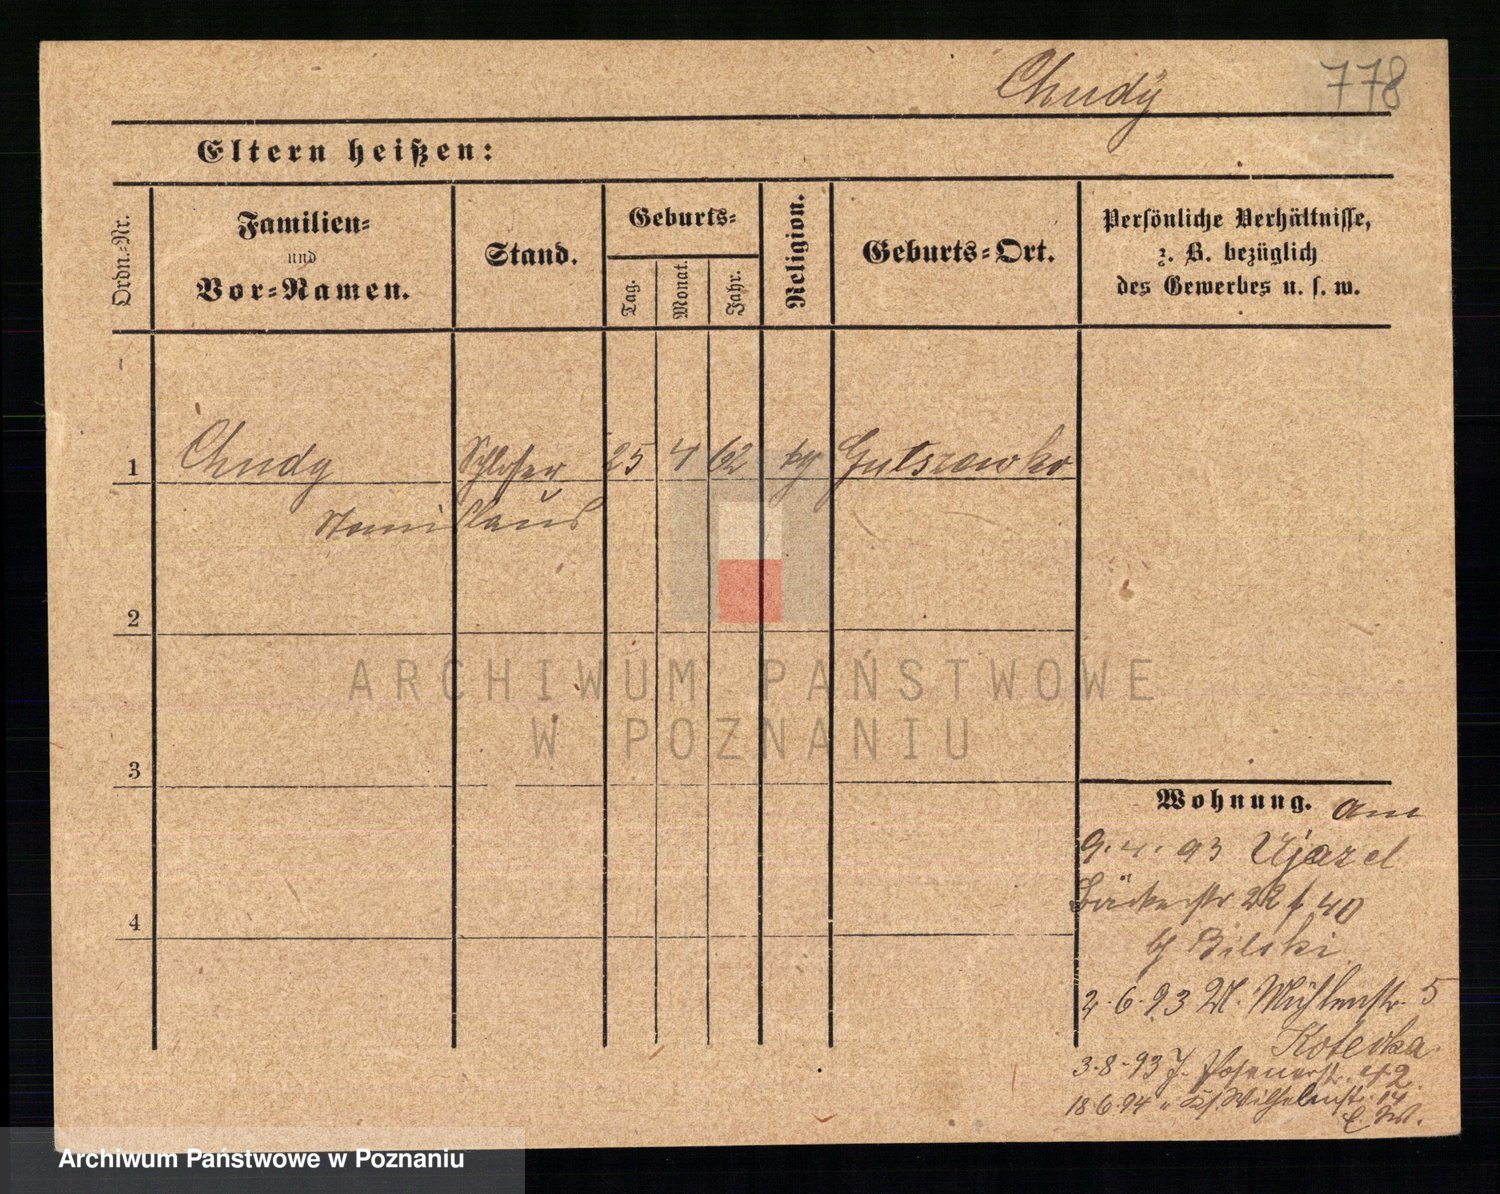 Chudÿ 778
Eltern heißen:
Ordn.-Nr.
Familien-
und
Vor-Namen.
Stand.
Geburts-
Tag.
Monat.
Jahr.
Religion.
Geburts-Ort.
Persönliche Verhältnisse,
z. B. bezüglich
des Gewerbes u. s. w.
1 Chudy Schlosser 25 4 62 kg
Stanislaus
2
3
4
Wohnung. am
9.4.93
Bäckerstr 22 40
2.6.93 Mühlenstr. 5
3.8.93 J. Posenerstr. 42
18.6.94 Wilhelmstr. 14
ARCHIWUM PAŃSTWOWE
W POZNANIU
Archiwum Państwowe w Poznaniu